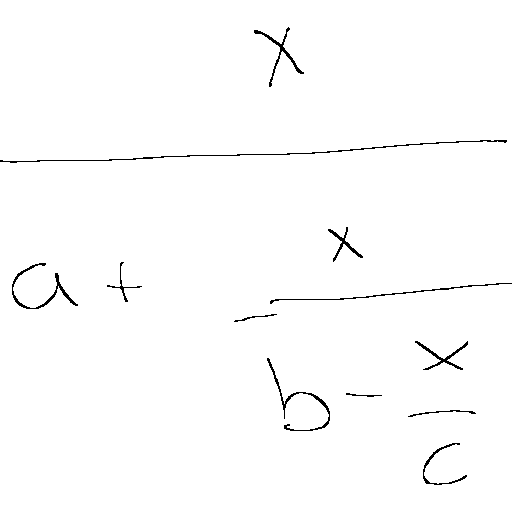 x
a + x
- b - x
c